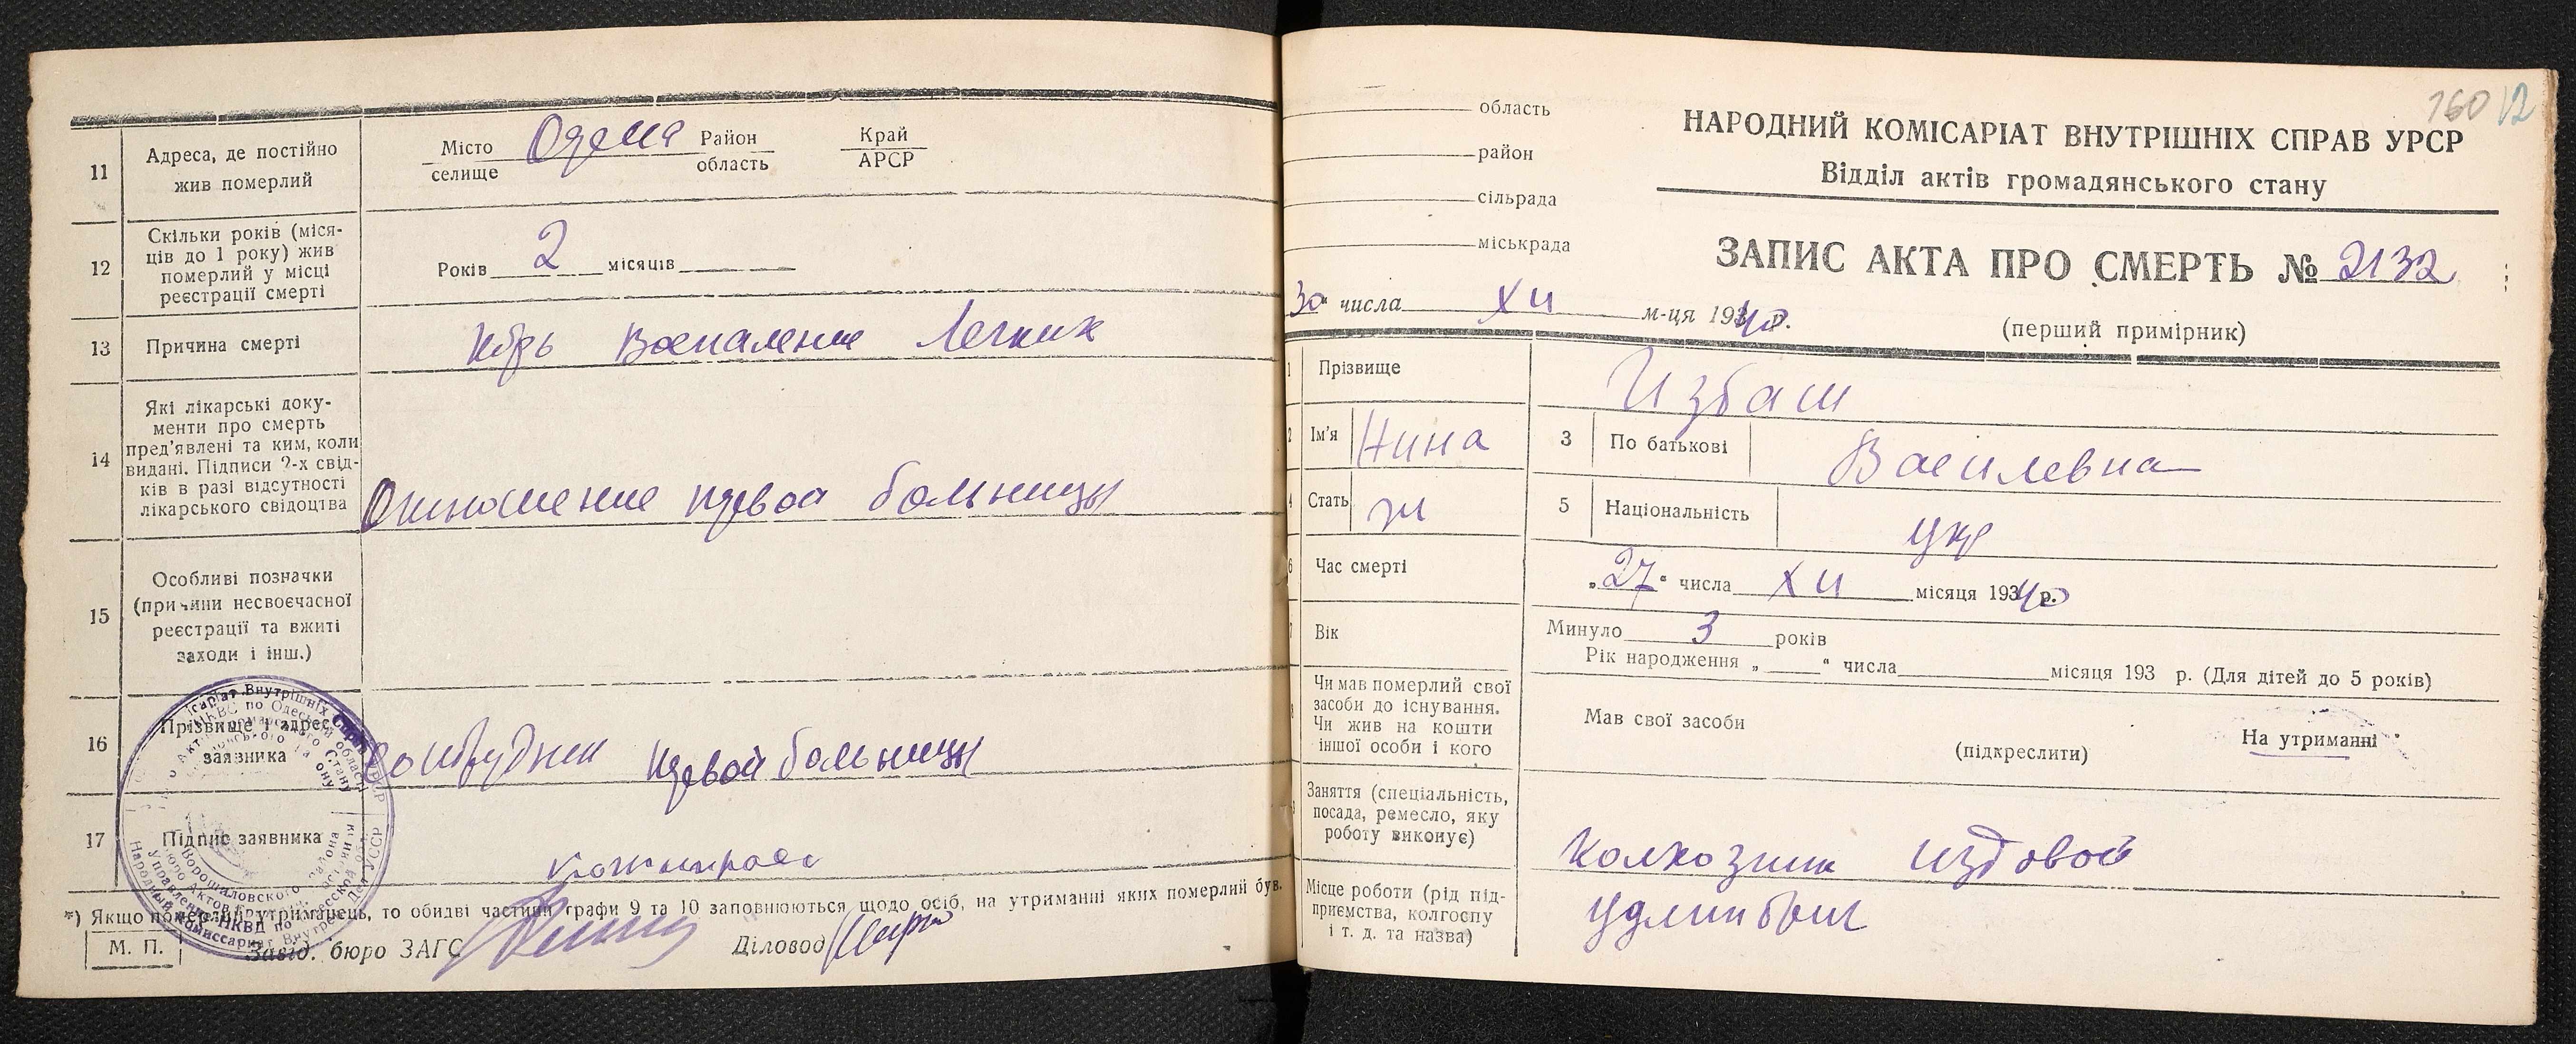 11
Адреса, де постійно
жив померлий
Місто Одесса Район Край
селище область АРСР
12
Скільки років (міся-
ців до 1 року) жив
померлий у місці
реєстрації смерті
Років 2 місяців
13
Причина смерті
Корь Воспаление Легких
14
Які лікарські доку-
менти про смерть
пред'явлені та ким, коли
видані. Підписи 2-х свід-
ків в разі відсутності
лікарського свідоцтва
Отношение
больницы
15
Особливі позначки
(причини несвоєчасної
реєстрації та вжиті
заходи і інш.)
16
Прізвище і адрес
заявника
больницы
17
Підпис заявника
*) Якщо померлий утриманець, то обидві частини графи 9 та 10 заповнюються щодо осіб, на утриманні яких померлий був.
М. П. Завід. бюро ЗАГС Діловод
160 12
область
район
сільрада
міськрада
НАРОДНИЙ КОМІСАРІАТ ВНУТРІШНІХ СПРАВ УРСР
Відділ актів громадянського стану
ЗАПИС АКТА ПРО СМЕРТЬ № 2132
30" числа XII м-ця 1940 р.
(перший примірник)
1 Прізвище Избаш
2 Ім'я Нина 3 По батькові Василевна
4 Стать ж 5 Національність укр
6 Час смерті „27" числа XII місяця 1940 р.
7 Вік Минуло 3 років
Рік народження „ " числа місяця 193 р. (Для дітей до 5 років)
8
Чи мав померлий свої
засоби до існування.
Чи жив на кошти
іншої особи і кого
Мав свої засоби
(підкреслити)
На утриманні
Заняття (спеціальність,
посада, ремесло, яку
роботу виконує)
Колхозник ездовой
Місце роботи (рід під-
приємства, колгоспу
і т. д. та назва)